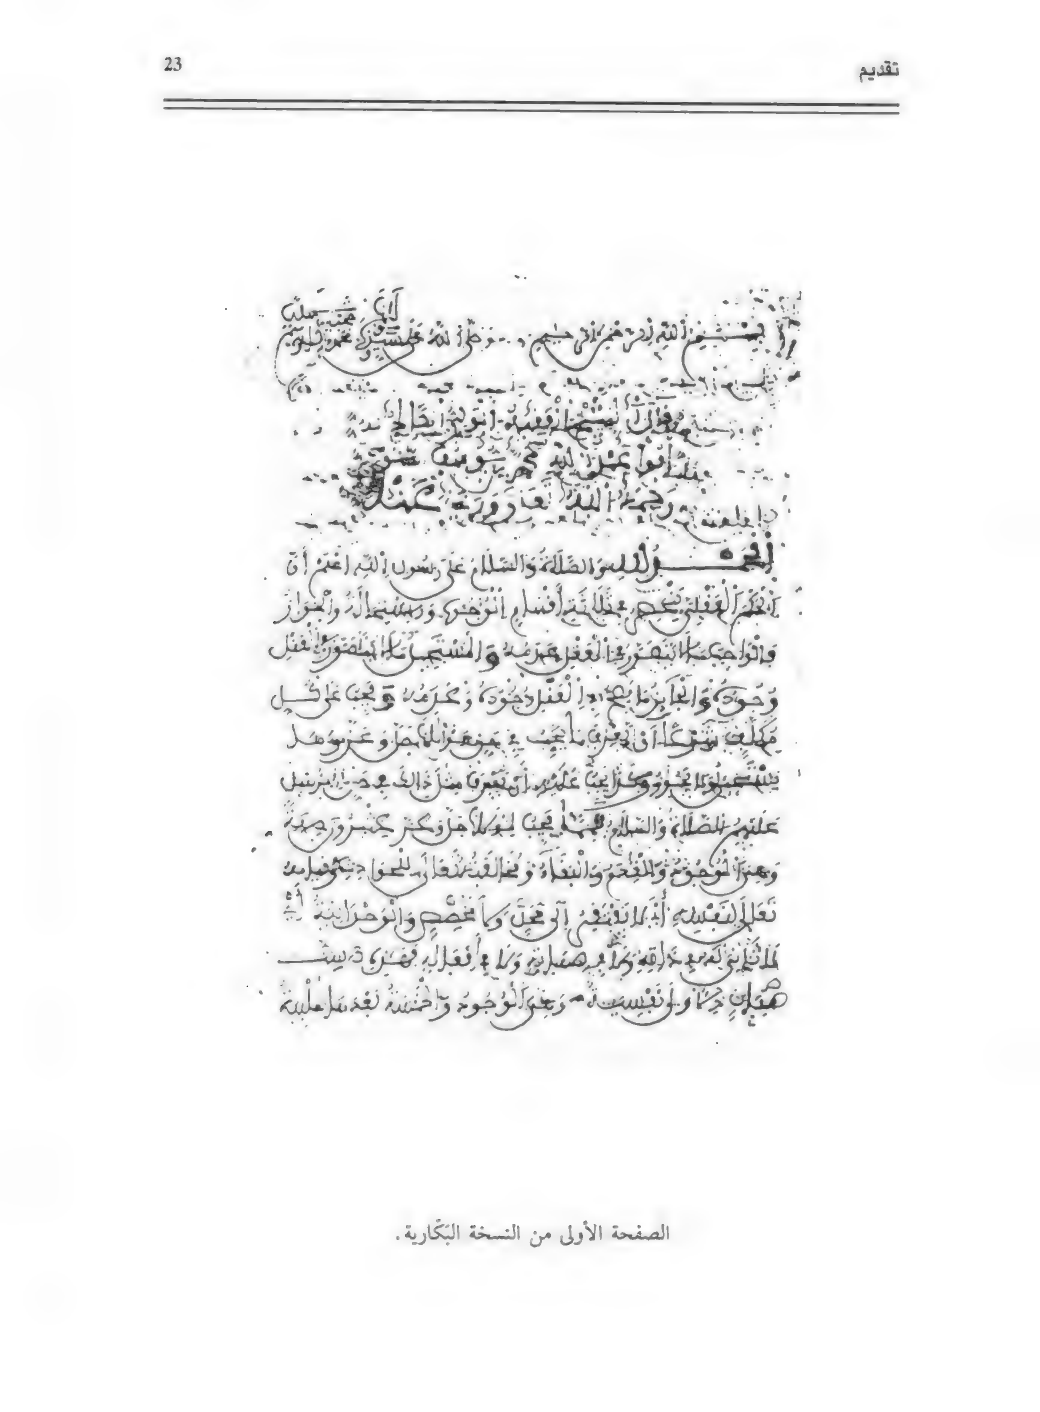 تقديم
23
بسم الله الرحمن الرحيم وصلى الله على سيدنا محمد
قال الشيخ الفقيه الولي الصالح
أبو عبد الله محمد بن يوسف السنوسي
رحمه الله تعالى ورضي عنه
الحمد لله والصلاة والسلام على رسول الله اعلم أن
الحكم العقلي ينحصر في ثلاثة أقسام الوجوب والاستحالة والجواز
فالواجب ما لا يتصور في العقل عدمه والمستحيل ما لا يتصور في العقل
وجوده والجائز ما يصح في العقل وجوده وعدمه ويجب على كل
مكلف شرعا أن يعرف ما يجب في حق مولانا جل وعز وما
يستحيل وما يجوز وكذا يجب عليه أن يعرف مثل ذلك في حق الرسل
عليهم الصلاة والسلام فمما يجب لمولانا جل وعز عشرون صفة
وهي الوجود والقدم والبقاء ومخالفته تعالى للحوادث وقيامه
تعالى بنفسه أي لا يفتقر إلى محل ولا مخصص والوحدانية أي
لا ثاني له في ذاته ولا في صفاته ولا في أفعاله فهذه ست
صفات الأولى نفسية وهي الوجود والخمسة بعدها سلبية
الصفحة الأولى من النسخة البكّارية.